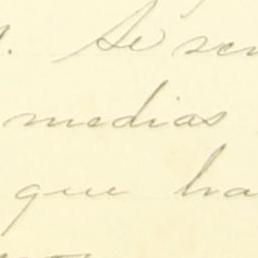 . Se sen
medias
que ha